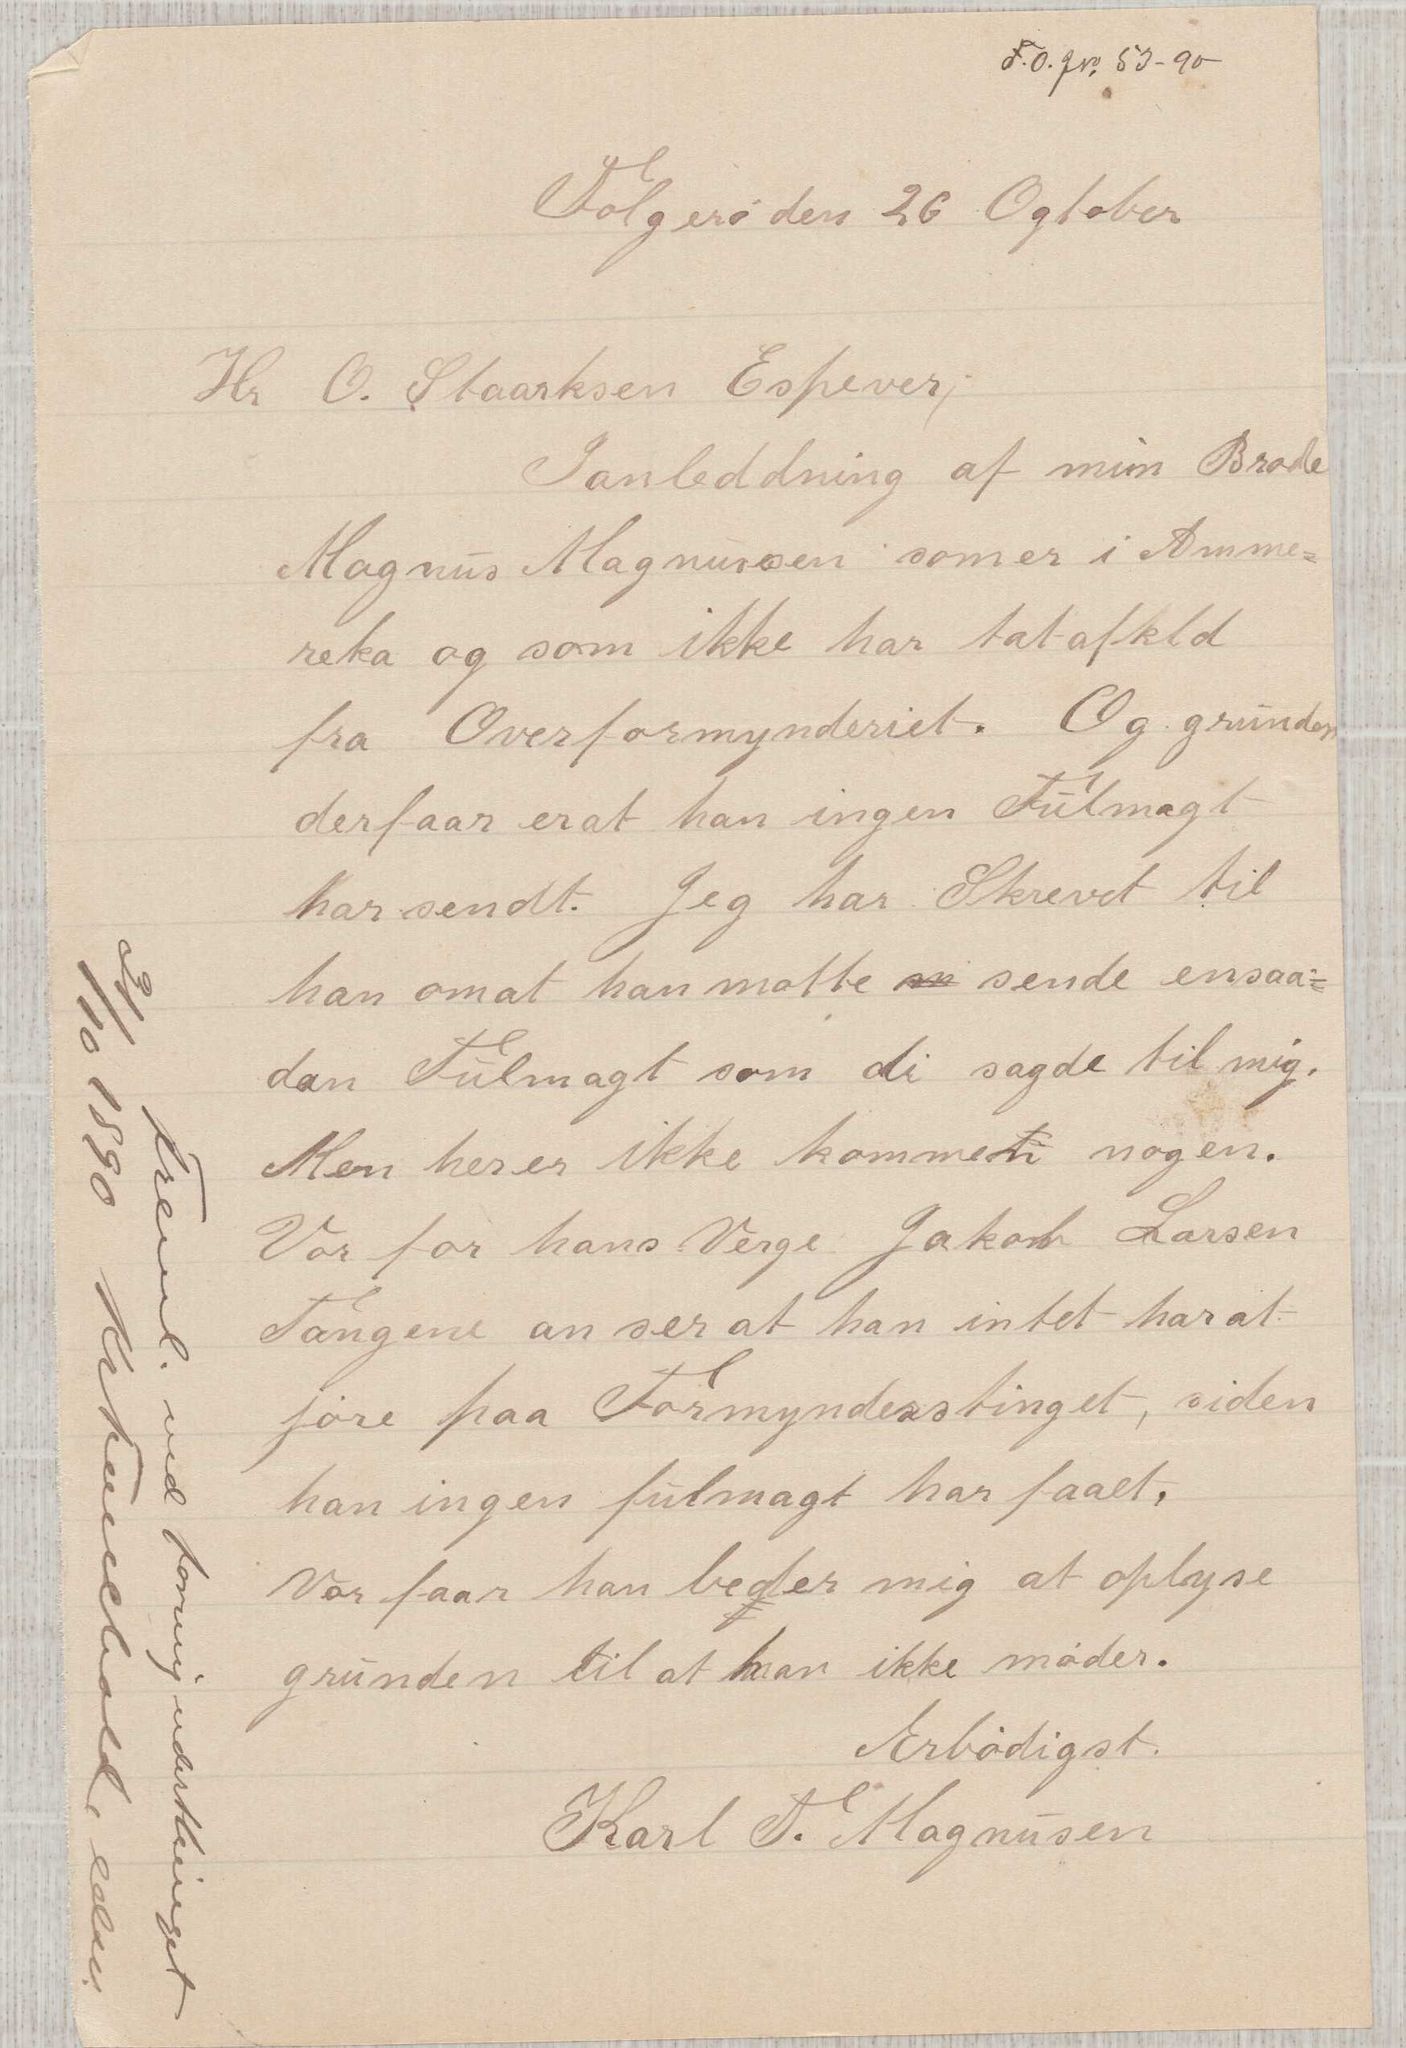 F.O. jn. 53-90
Følgerø den 26 Ogtober
Hr O. Staarksen Espever,
Ianleddning af min Brode
Magnus Magnussen som er i Amme=
reka og som ikke har tat afkld
fra Overformynderiet. Og grunden
derfaar er at han ingen Fulmagt
har sendt. Jeg har Skrevet til
han om at han motte sende ensaa=
dan Fulmagt som di sagde til mig.
Men her er ikke kommet nogen.
Vor for hans Verge Jakob Larsen
Tangene an ser at han intet har at
jøre paa Formynderstinget, siden
han ingen fulmagt har faaet.
Vor faar han beder mig at oplyse
grunden til at han ikke møder.
Ærbødigst.
Karl T. Magnusen
Freml. ved formynderthinget
31/10 1890